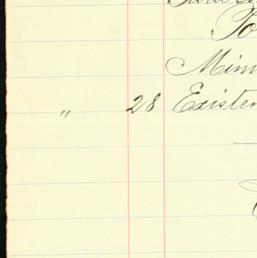 To
Mim
" 28 Existen